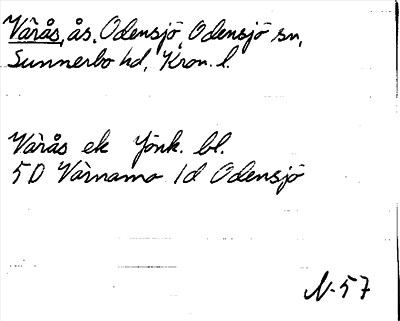 Vårås, ås, Odensjö, Odensjö sn,
Sunnerbo hd, Kron. l.
Vårås ek Jönk. bl.
5D Värnamo 1d Odensjö
N-57